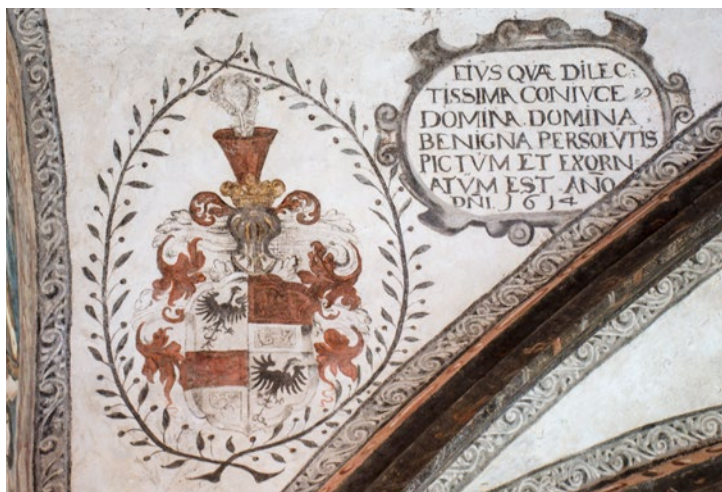 EIVS QVÆ DILEC-
TISSIMA CONIVGE
DOMINA DOMINA
BENIGNA PERSOLVTIS
PICTVM ET EXORN-
ATVM EST AÑO
DNI 1614